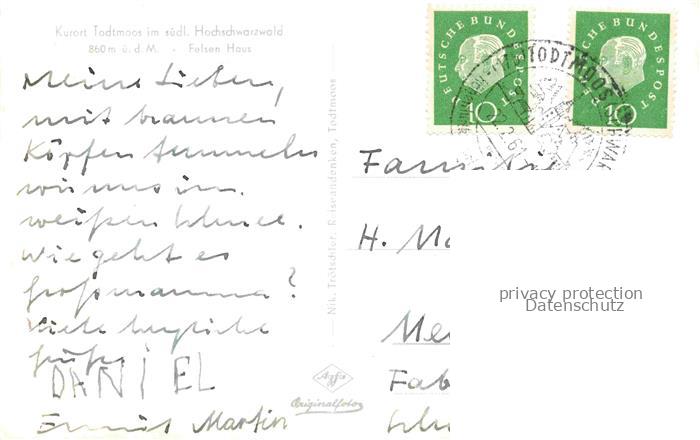 Kurort Todtmoos im südl. Hochschwarzwald
860 m ü. d. M. - Felsen Haus
Meine Lieben,
mit braunen
Köpfen tummeln
wir uns im
weißen Schnee.
Wie geht es
Großmamma?
Viele herzliche
Grüße
DANIEL
Martin
Nik. Trötschler, Reiseandenken, Todtmoos
Agfa
Originalfoto
DEUTSCHE BUNDESPOST
10
DEUTSCHE BUNDESPOST
10
TODTMOOS
2.61
Familie
H. Ma
Me
Fab
privacy protection
Datenschutz